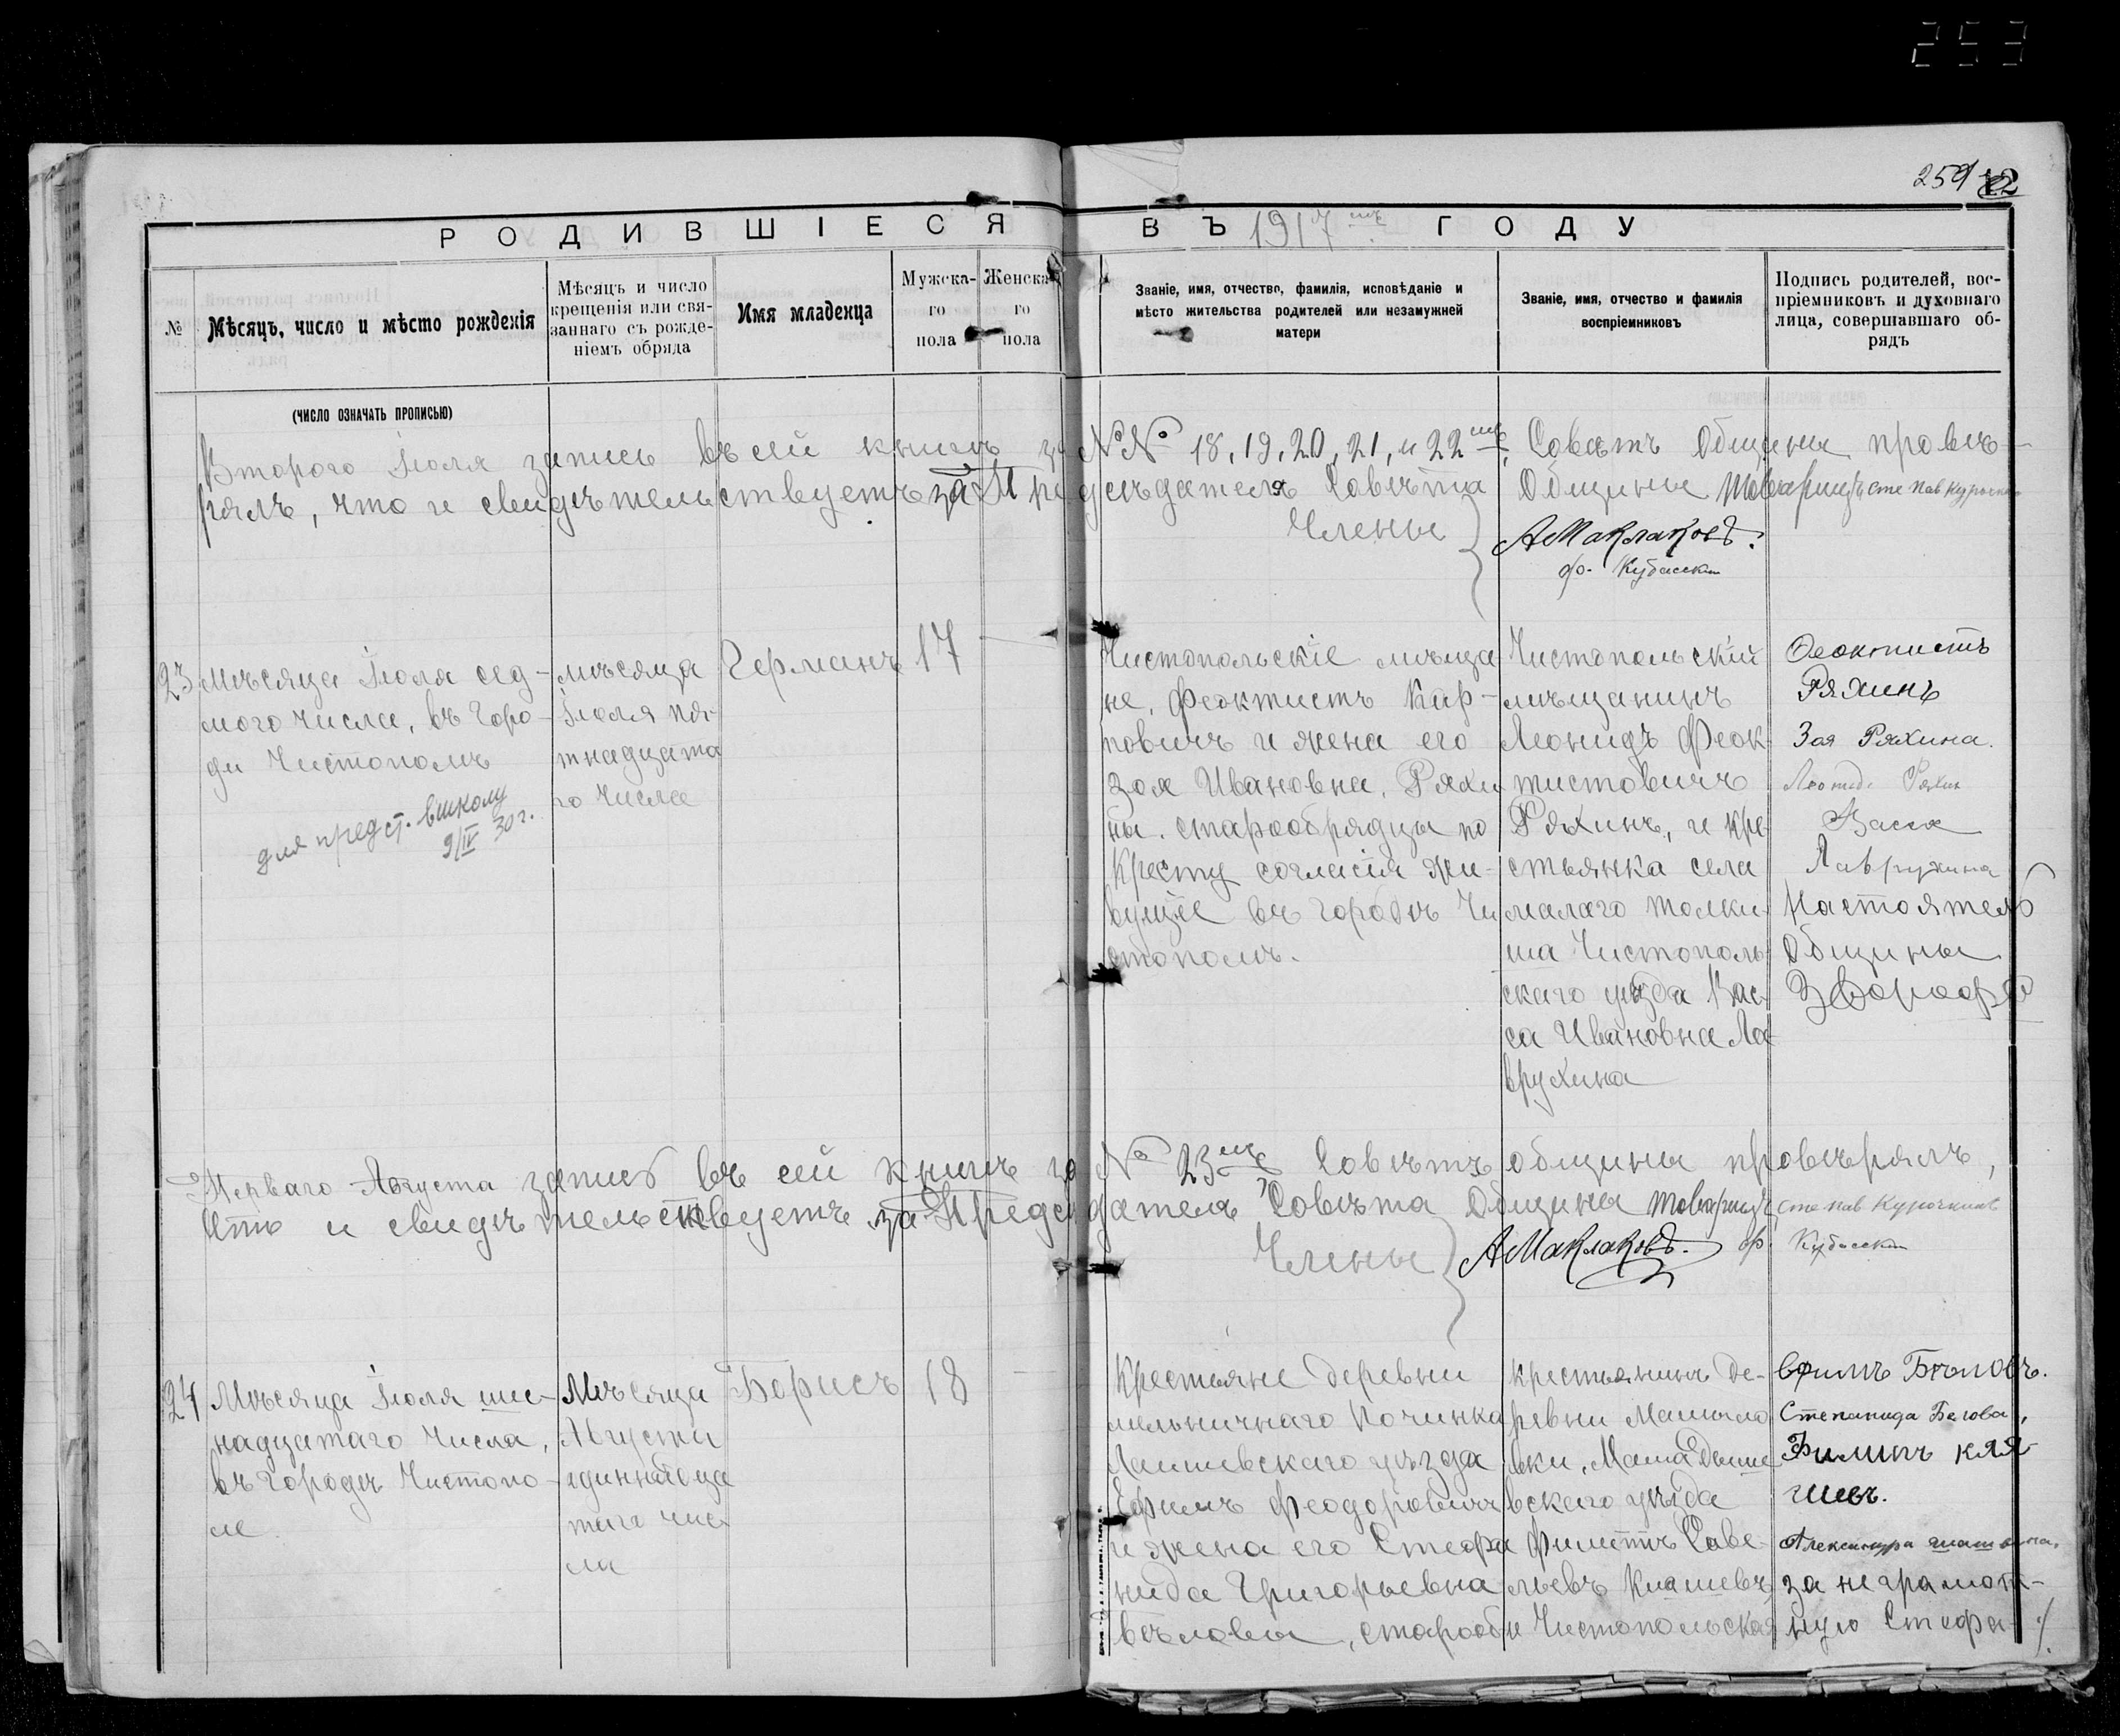 253
259
12
РОДИВШІЕСЯ ВЪ 1917 мъ ГОДУ
№
Мѣсяцъ, число и мѣсто рожденія
Мѣсяцъ и число
крещенія или свя-
заннаго съ рожде-
ніемъ обряда
Имя младенца
Мужска-
го
пола
Женска-
го
пола
Званіе, имя, отчество, фамилія, исповѣданіе и
мѣсто жительства родителей или незамужней
матери
Званіе, имя, отчество и фамилія
воспріемниковъ
Подпись родителей, вос-
пріемниковъ и духовнаго
лица, совершавшаго об-
рядъ
(ЧИСЛО ОЗНАЧАТЬ ПРОПИСЬЮ)
Второго Іюля запись въ сей книгѣ за №№ 18, 19, 20, 21, и 22 Совѣтъ Общины провѣ-
рялъ, что и свидѣтельствуетъ за Предсѣдателя Совѣта Общины Товарищъ Степ Курочкин
Члены
АМаклаковъ.
ф. Кубасскин
23
Мѣсяца Іюля сед-
мого числа, въ Горо-
дѣ Чистополѣ
для предст. в школу
9/IV 30 г.
мѣсяца
Іюля пя-
тнадцата
го числа
Германъ
17
Чистопольскіе мѣща
не, Феоктистъ Кар-
повичъ и жена его
Зоя Ивановна, Ряхи
ны. старообрядцы по
Кресту согласія жи-
вущіе въ городѣ Чи
стополѣ.
Чистопольскій
мѣщанинъ
Леонидъ Феок-
тистовичъ
Ряхинъ, и кре-
стьянка села
малаго Толки-
ша Чистополь-
скаго уѣзда Вас-
са Ивановна Ла-
врухина
Феоктистъ
Ряхинъ
Зоя Ряхина.
Ряхин
Васса
Лаврухина
Настоятель
Общины
Перваго Августа запись въ сей книгѣ за № 23 мъ Совѣтъ общины провѣрялъ,
что и свидѣтельствуетъ за Предсѣдателя Совѣта Общины Товарищъ Степ Курочкинъ
Члены
АМаклаковъ.
ф. Кубасскин
24
Мѣсяца Іюля ше-
надцатаго числа,
въ городѣ Чистопо-
ле
Мѣсяца
Августа
единнадца
таго чис-
ла
Борисъ
18
Крестьяне деревни
мельничнаго Починка
Лаишевскаго уѣзда
Ефимъ Феодоровичъ
и жена его Стефа
нида Григорьевна
Бѣловы, старообр
крестьянинъ де-
ревни
вки, Мамадыше
вскаго уѣзда
Филиппъ Саве-
льевъ Кляшевъ,
и Чистопольская
Ефимъ Бѣловъ.
Степанида Белова,
Филипъ кля-
шевъ.
Александра
за неграмот-
ную Стефа- ./.